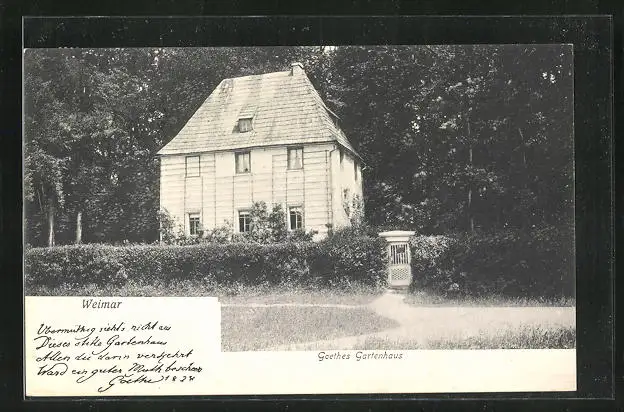 Weimar
Übermüthig sieht's nicht aus
Dieses stille Gartenhaus
Allen die darin verkehrt
Ward ein guter Muth bescheert
Goethe 1828
Goethes Gartenhaus